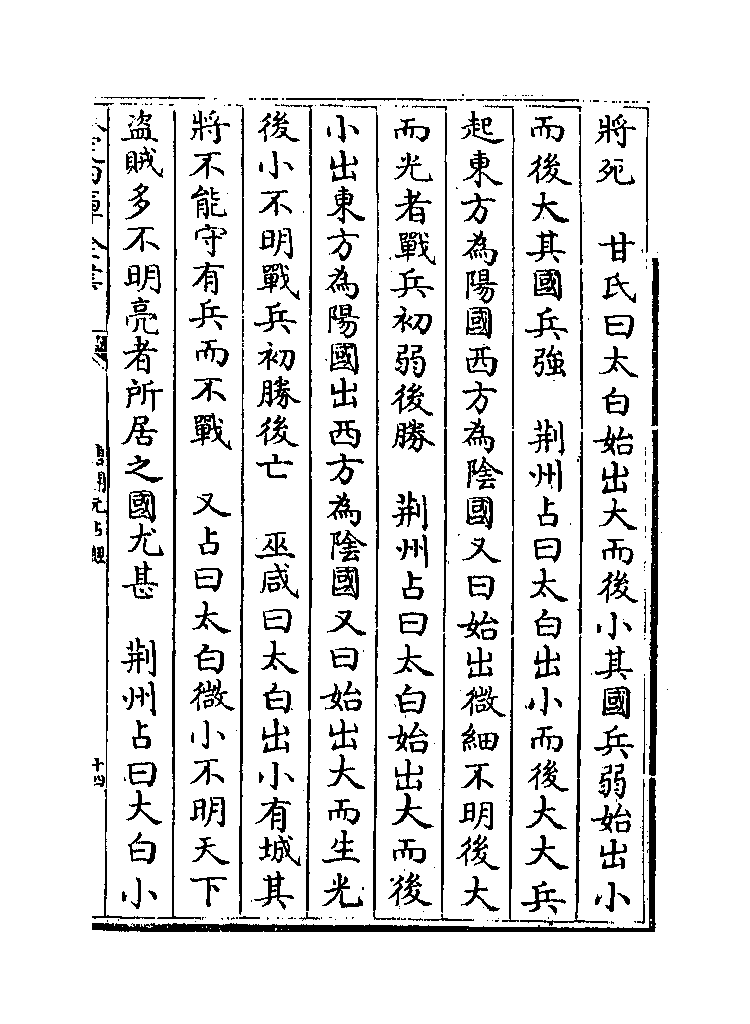 將死　甘氏曰太白始出大而後小其國兵弱始出小
而後大其國兵強　荆州占曰太白出小而後大大兵
起東方為陽國西方為陰國又曰始出微細不明後大
而光者戰兵初弱後勝　荆州占曰太白始出大而後
小出東方為陽國出西方為陰國又曰始出大而生光
後小不明戰兵初勝後亡　巫咸曰太白出小有城其
將不能守有兵而不戰　又占曰太白微小不明天下
盜賊多不明亮者所居之國尤甚　荆州占曰大白小
唐開元占經
十四